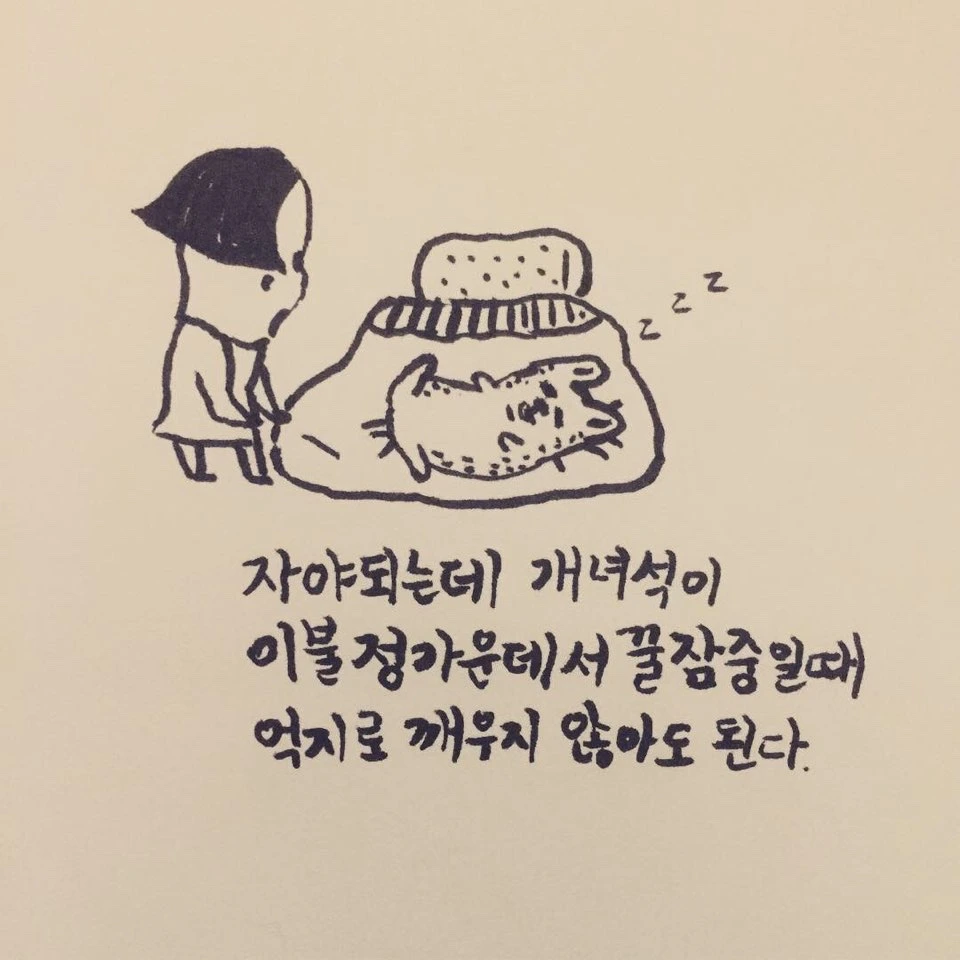 z z z
자야되는데 개녀석이
이불 정가운데에서 꿀잠중일때
억지로 깨우지 않아도 된다.